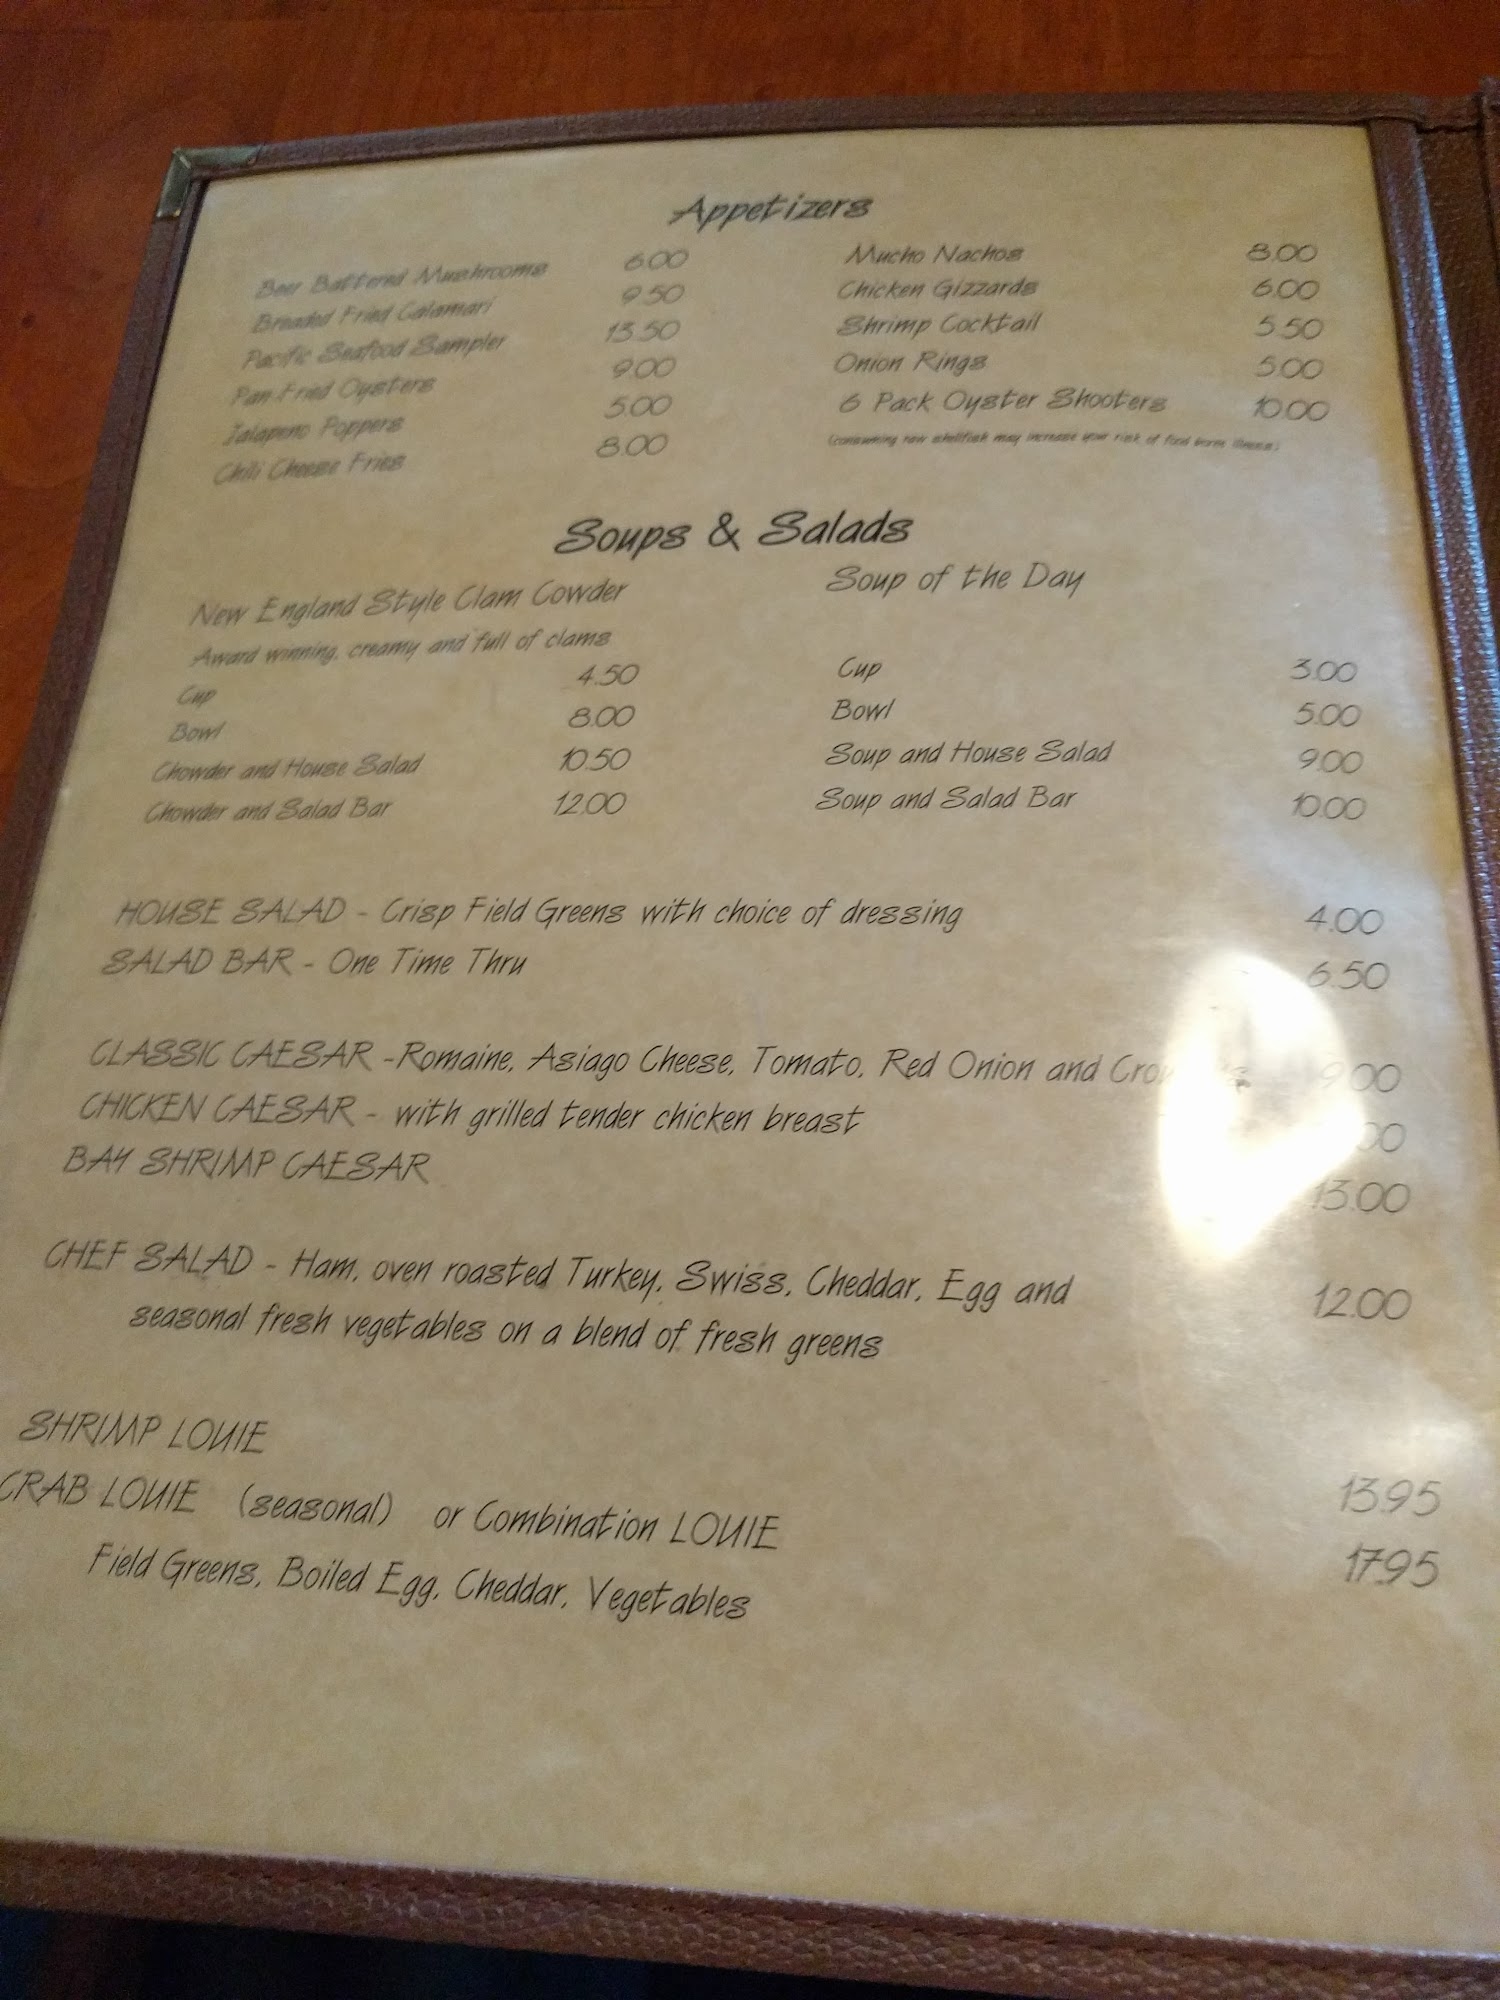 Appetizers
Beer Battered Mushrooms 6.00
Breaded Fried Calamari 9.50
Pacific Seafood Sampler 13.50
Pan Fried Oysters 9.00
Jalapeno Poppers 5.00
Chili Cheese Fries 8.00
Mucho Nachos 8.00
Chicken Gizzards 6.00
Shrimp Cocktail 5.50
Onion Rings 5.00
6 Pack Oyster Shooters 10.00
(consuming raw shellfish may increase your risk of food borne illness)
Soups & Salads
New England Style Clam Cowder
Award winning, creamy and full of clams
Cup 4.50
Bowl 8.00
Chowder and House Salad 10.50
Chowder and Salad Bar 12.00
Soup of the Day
Cup 3.00
Bowl 5.00
Soup and House Salad 9.00
Soup and Salad Bar 10.00
HOUSE SALAD - Crisp Field Greens with choice of dressing 4.00
SALAD BAR - One Time Thru 6.50
CLASSIC CAESAR -Romaine, Asiago Cheese, Tomato, Red Onion and 9.00
CHICKEN CAESAR - with grilled tender chicken breast
BAY SHRIMP CAESAR 13.00
CHEF SALAD - Ham, oven roasted Turkey, Swiss, Cheddar, Egg and 12.00
seasonal fresh vegetables on a blend of fresh greens
SHRIMP LOUIE 13.95
CRAB LOUIE (seasonal) or Combination LOUIE 17.95
Field Greens, Boiled Egg, Cheddar, Vegetables